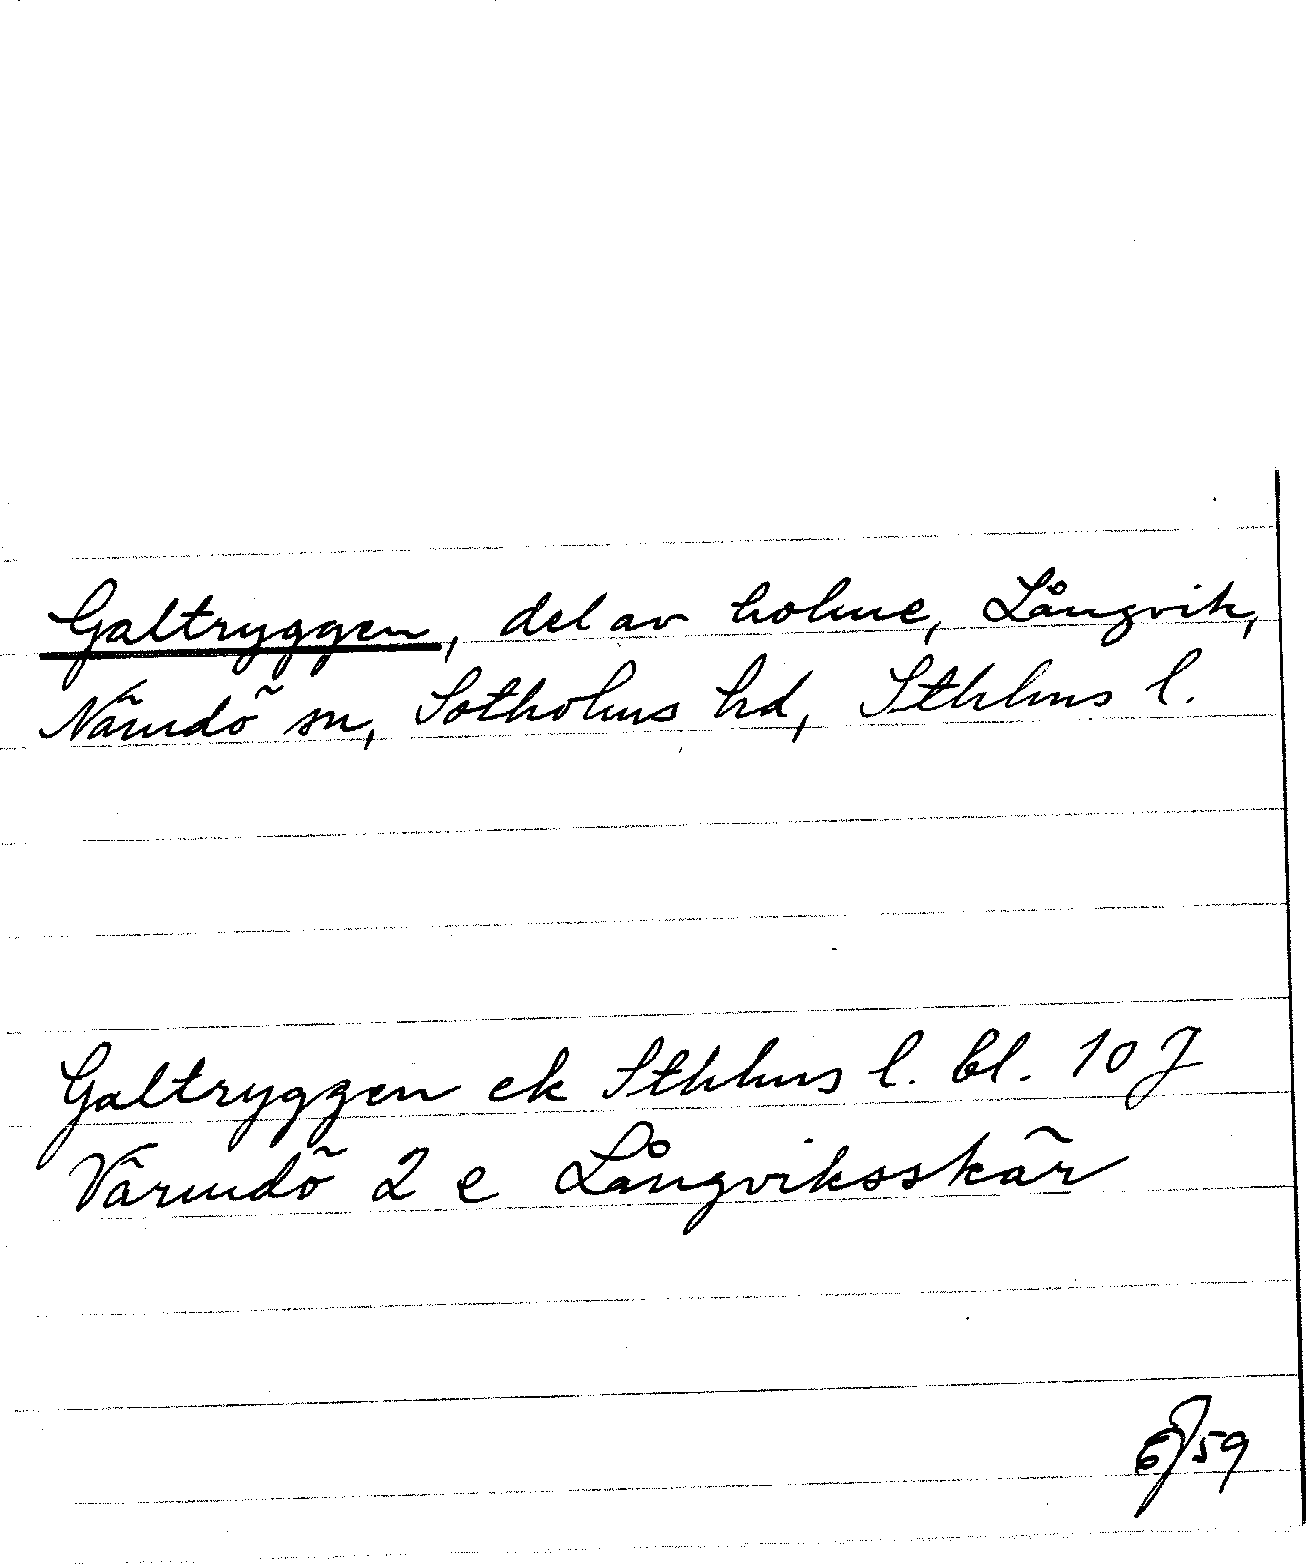 Galtryggen, del av holme, Långvik,
Nämdö sn, Sotholms hd, Sthlms l.
Galtryggen ek Sthlms l. bl. 10 J
Värmdö 2 e Långviksskär
59